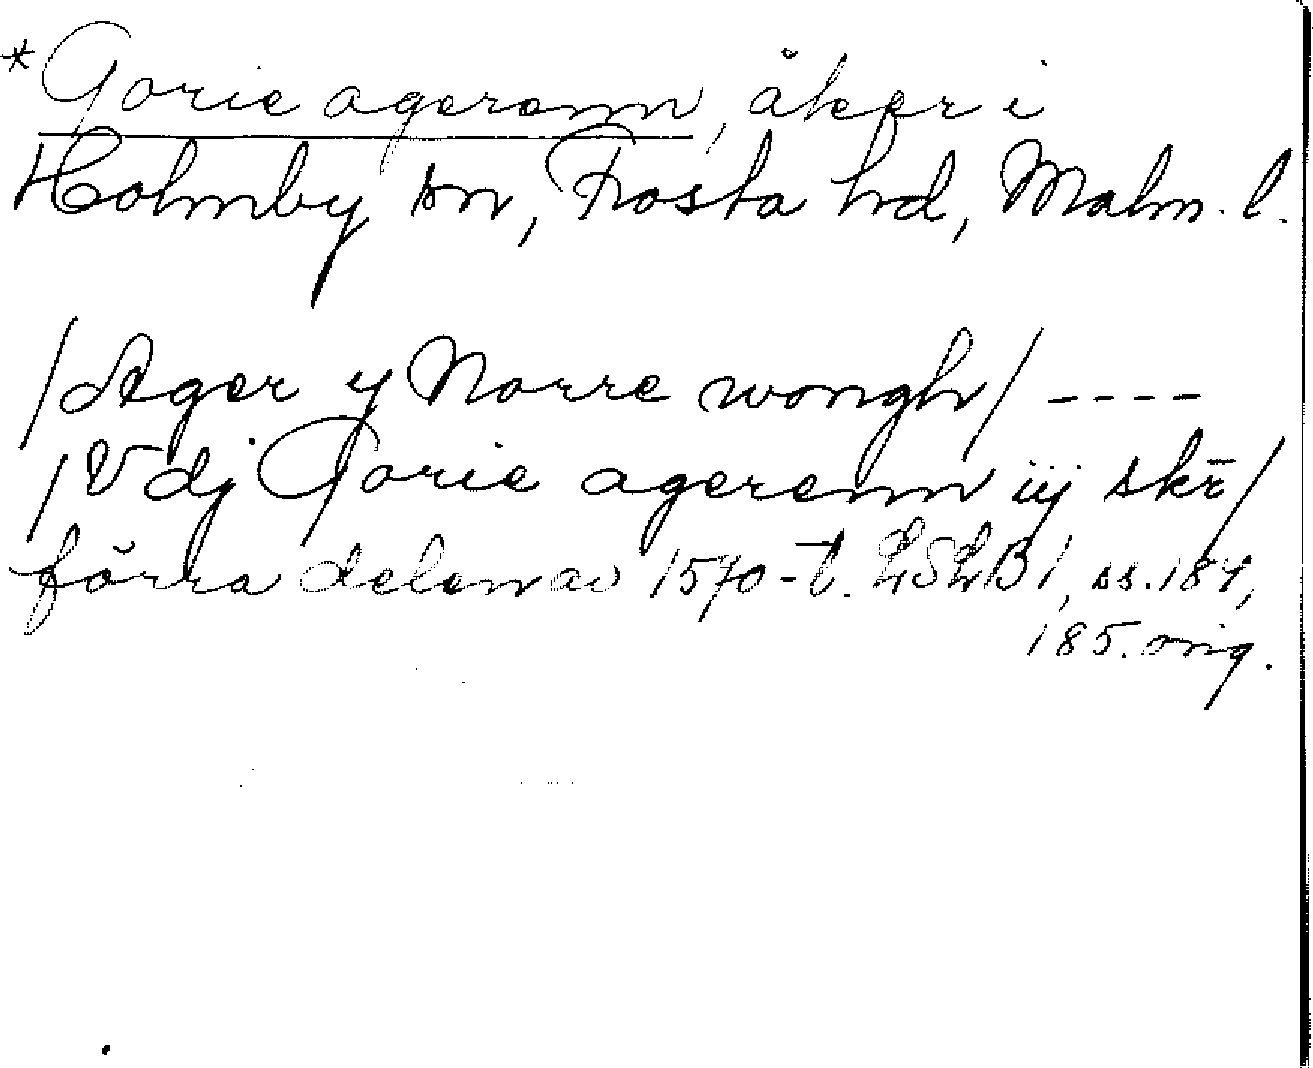 *Gorie agerenn, åker i
Holmby sn, Frosta hd, Malm. l.
/Ager y Norre wongh/ ----
/Vdj Gorie agerenn iij skr̄/
förra delen av 1570-t. LSLB 1, ss. 184,
185. orig.